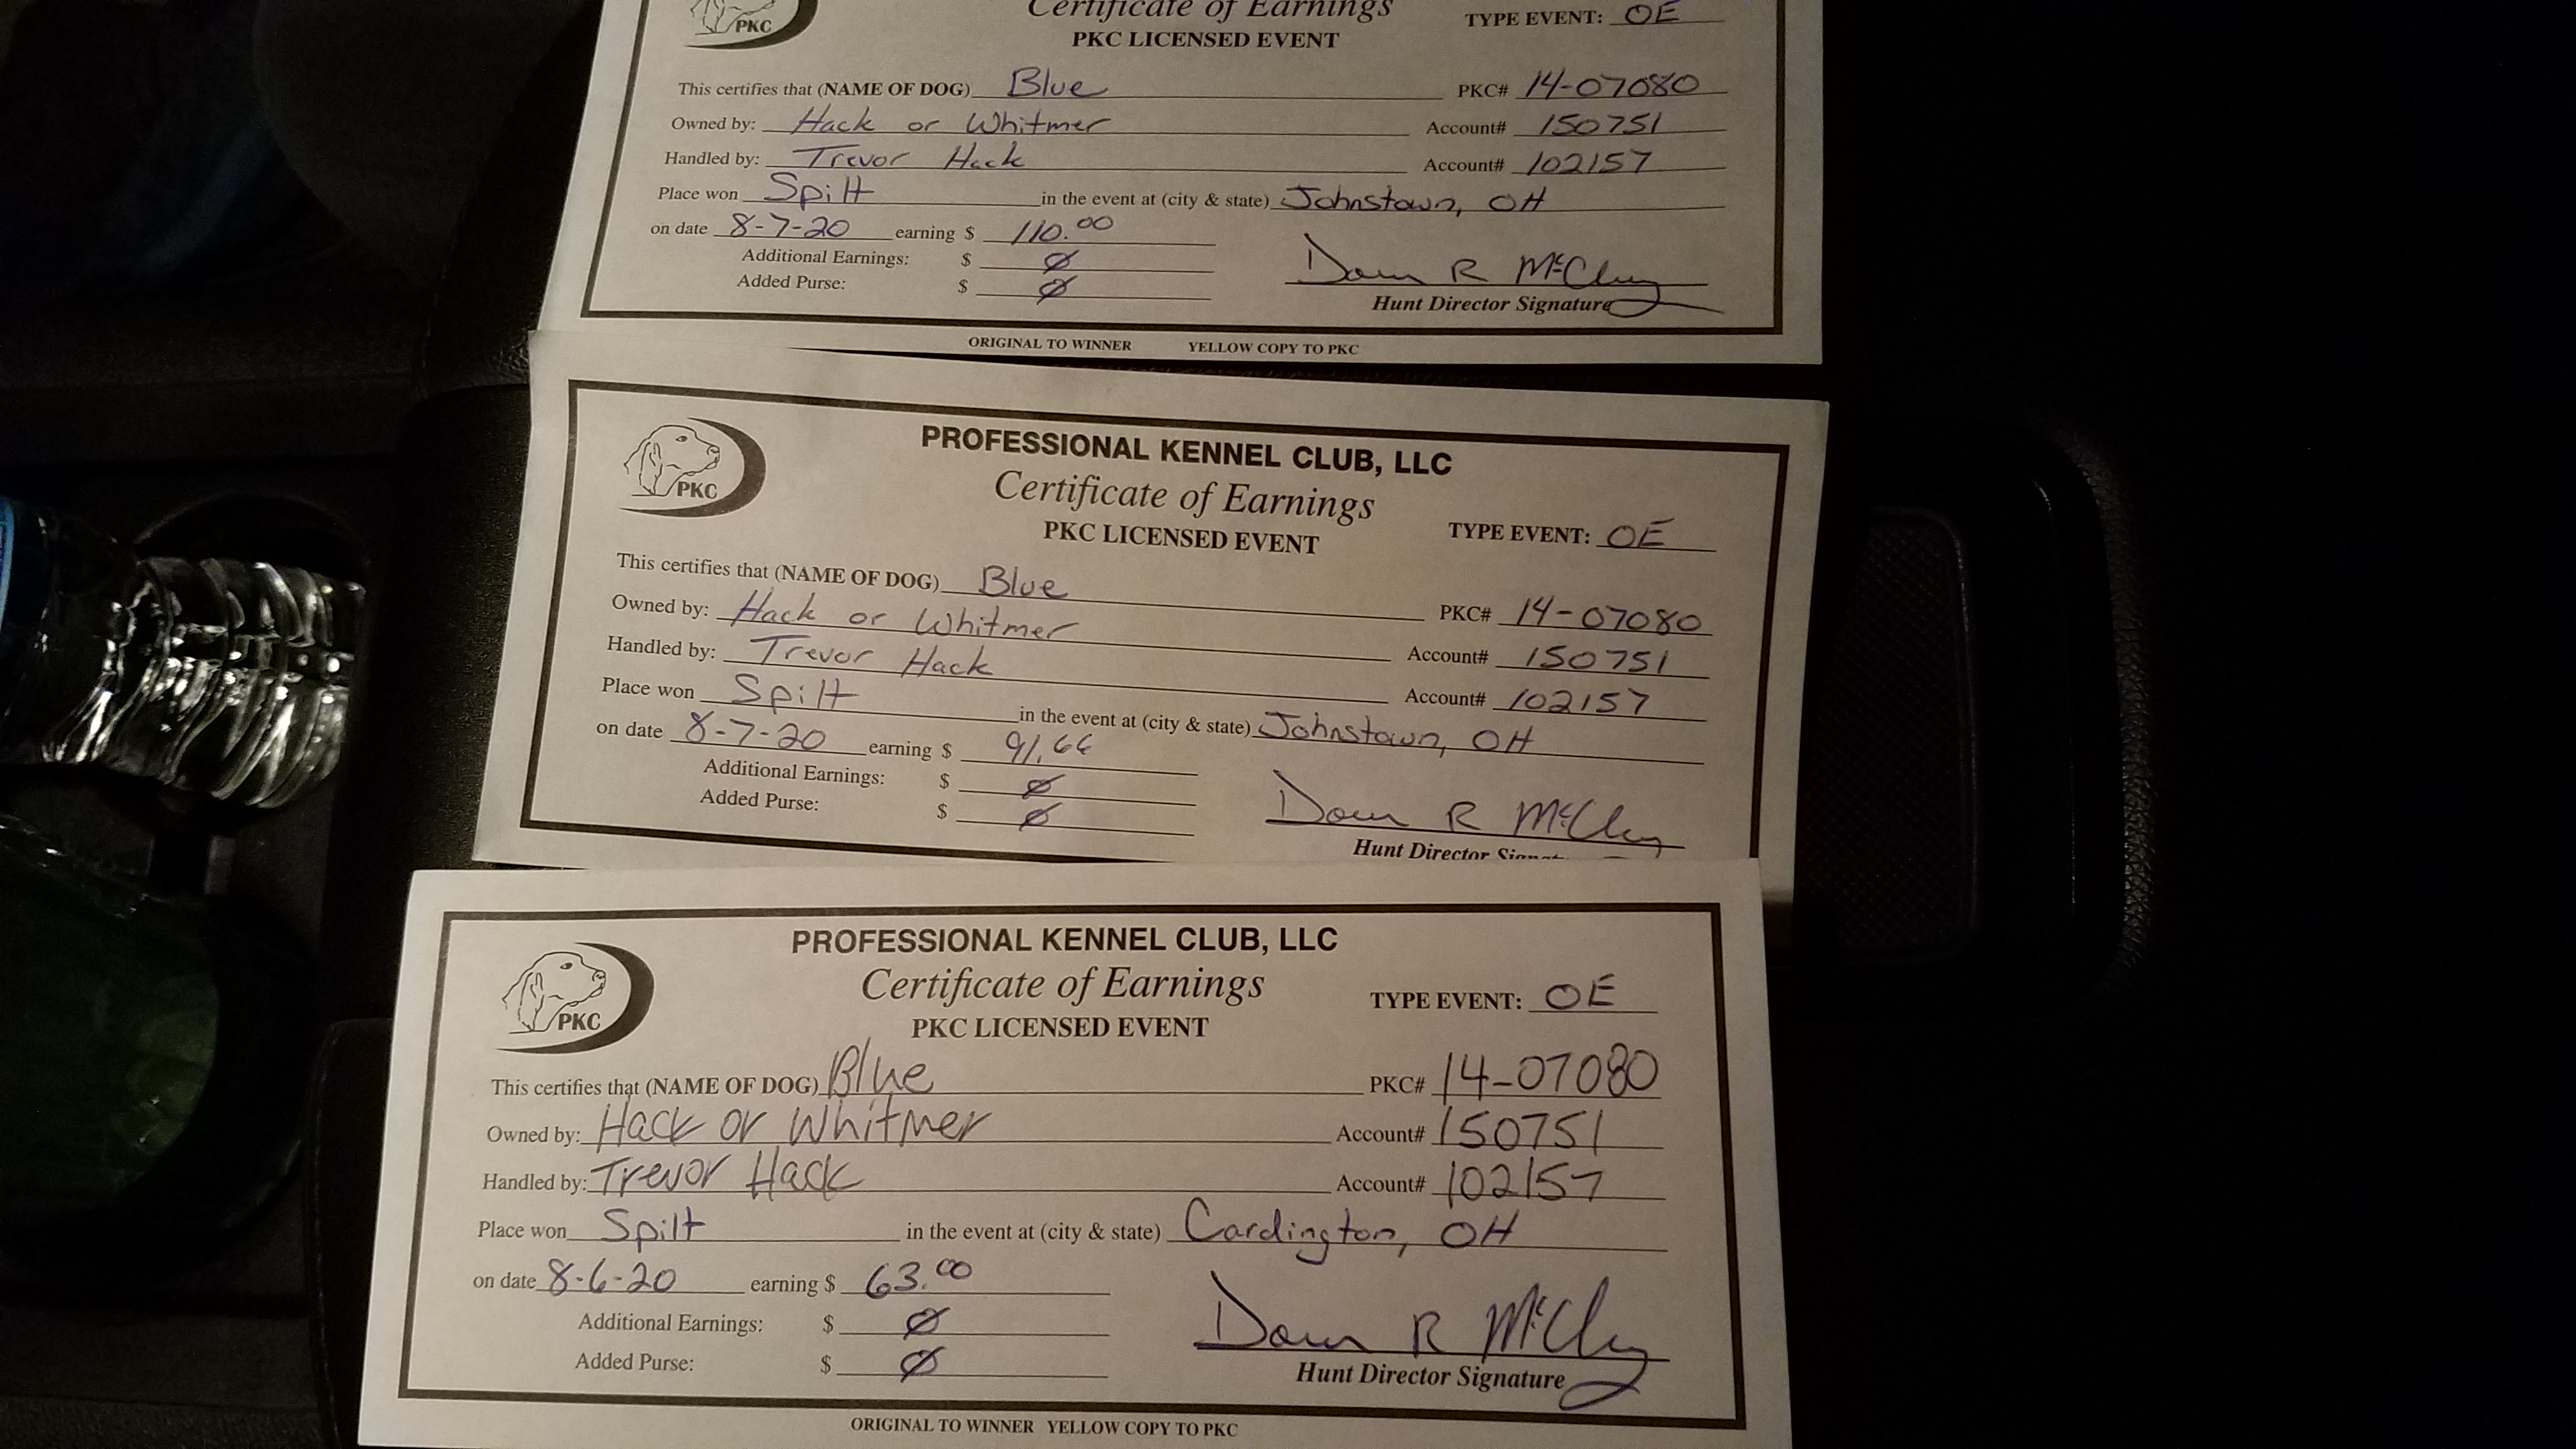 PKC
Certificate of Earnings
PKC LICENSED EVENT
TYPE EVENT: OE
This certifies that (NAME OF DOG) Blue PKC# 14-07080
Owned by: Hack or Whitmer Account# 150751
Handled by: Trevor Hack Account# 102157
Place won Spilt in the event at (city & state) Johnstown, OH
on date 8-7-20 earning $ 110.00
Additional Earnings: $ Ø
Added Purse: $ Ø
Hunt Director Signature
ORIGINAL TO WINNER YELLOW COPY TO PKC
PKC
PROFESSIONAL KENNEL CLUB, LLC
Certificate of Earnings
PKC LICENSED EVENT
TYPE EVENT: OE
This certifies that (NAME OF DOG) Blue PKC# 14-07080
Owned by: Hack or Whitmer Account# 150751
Handled by: Trevor Hack Account# 102157
Place won Spilt in the event at (city & state) Johnstown, OH
on date 8-7-20 earning $ 91.66
Additional Earnings: $ Ø
Added Purse: $ Ø
Hunt Director
PKC
PROFESSIONAL KENNEL CLUB, LLC
Certificate of Earnings
PKC LICENSED EVENT
TYPE EVENT: OE
This certifies that (NAME OF DOG) Blue PKC# 14-07080
Owned by: Hack or Whitmer Account# 150751
Handled by: Trevor Hack Account# 102157
Place won Spilt in the event at (city & state) Cardington, OH
on date 8-6-20 earning $ 63.00
Additional Earnings: $ Ø
Added Purse: $ Ø
Hunt Director Signature
ORIGINAL TO WINNER YELLOW COPY TO PKC